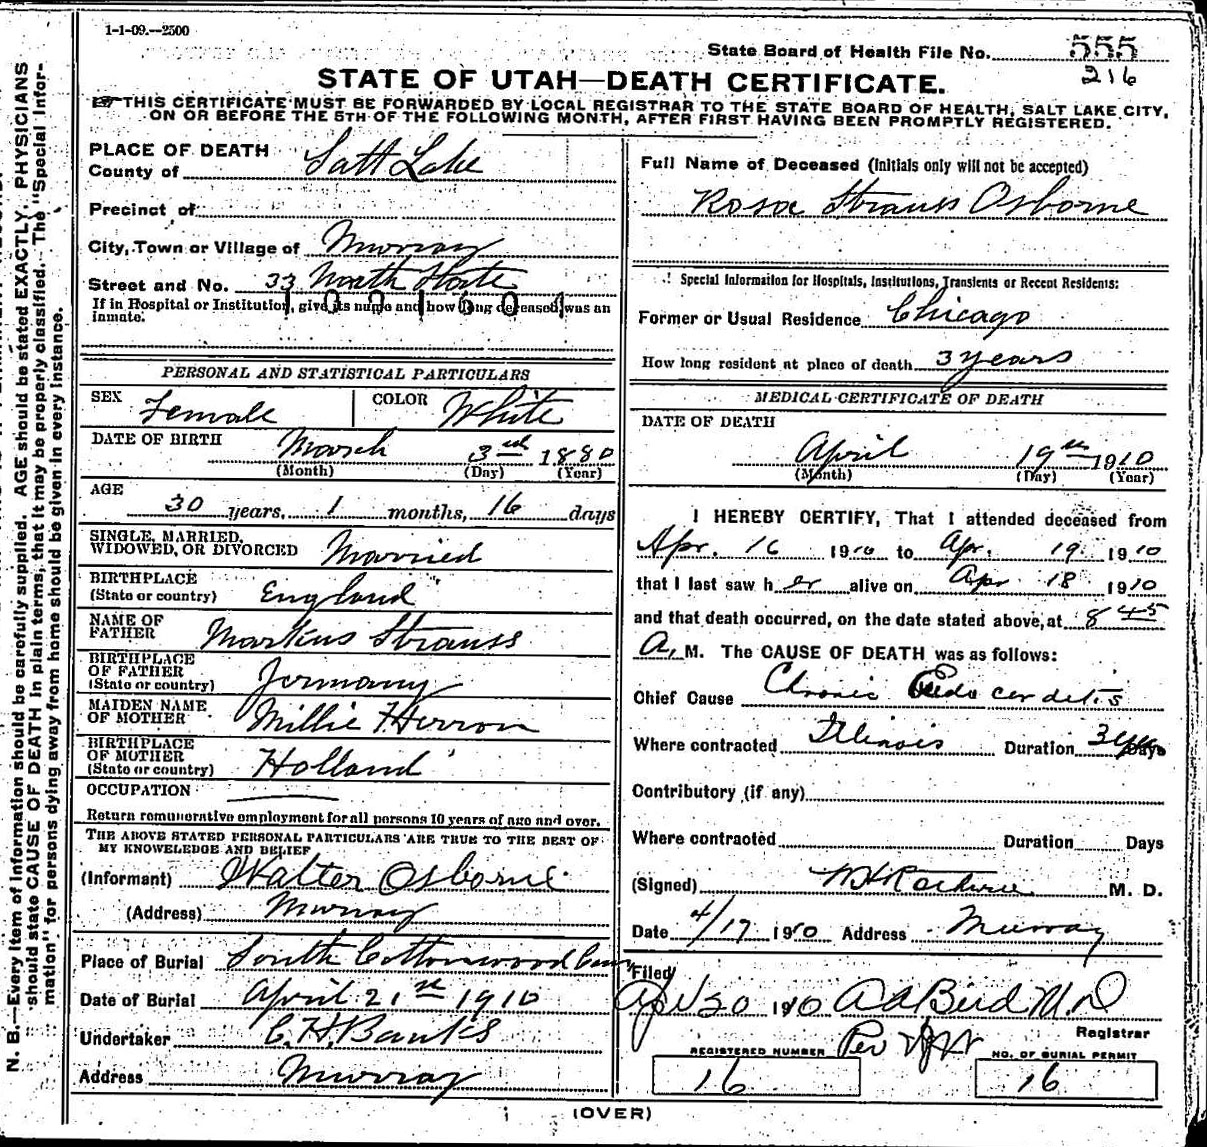 1-1-09.--2500
State Board of Health File No. 555
216
STATE OF UTAH—DEATH CERTIFICATE.
THIS CERTIFICATE MUST BE FORWARDED BY LOCAL REGISTRAR TO THE STATE BOARD OF HEALTH, SALT LAKE CITY,
ON OR BEFORE THE 5TH OF THE FOLLOWING MONTH, AFTER FIRST HAVING BEEN PROMPTLY REGISTERED.
PLACE OF DEATH
County of Salt Lake
Precinct of
City, Town or Village of Murray
Street and No. 33 North State
If in Hospital or Institution, give its name and how long deceased was an
inmate.
PERSONAL AND STATISTICAL PARTICULARS
SEX Female COLOR White
DATE OF BIRTH March 3rd 1880
(Month) (Day) (Year)
AGE
30 years, 1 months, 16 days
SINGLE, MARRIED,
WIDOWED, OR DIVORCED Married
BIRTHPLACE
(State or country) England
NAME OF
FATHER Markus Strauss
BIRTHPLACE
OF FATHER
(State or country) Jermany
MAIDEN NAME
OF MOTHER Millie F. Herron
BIRTHPLACE
OF MOTHER
(State or country) Holland
OCCUPATION
Return remunerative employment for all persons 10 years of age and over.
THE ABOVE STATED PERSONAL PARTICULARS ARE TRUE TO THE BEST OF
MY KNOWELEDGE AND BELIEF
(Informant) Walter Osborne
(Address) Murray
Place of Burial South Cottonwood Cem
Date of Burial April 21st 1910
Undertaker C. H. Banks
Address Murray
Full Name of Deceased (Initials only will not be accepted)
Rosa Strauss Osborne
Special Information for Hospitals, Institutions, Transients or Recent Residents:
Former or Usual Residence Chicago
How long resident at place of death 3 years
MEDICAL CERTIFICATE OF DEATH
DATE OF DEATH
April 19th 1910
(Month) (Day) (Year)
I HEREBY CERTIFY, That I attended deceased from
Apr. 16 1910 to Apr. 19. 1910
that I last saw her alive on Apr 18 1910
and that death occurred, on the date stated above, at 8 45
A. M. The CAUSE OF DEATH was as follows:
Chief Cause Chronic Endocardetis
Where contracted Illinois Duration 3 yrs Days
Contributory (if any)
Where contracted Duration Days
(Signed) M. D.
Date 4/19 1910 Address Murray
Filed
Apr 20 1910 A A Bird M.D
Registrar
Per
REGISTERED NUMBER
16
NO. OF BURIAL PERMIT
16
(OVER)
N. B.—Every item of information should be carefully supplied. AGE should be stated EXACTLY. PHYSICIANS
should state CAUSE OF DEATH in plain terms, that it may be properly classified. The "Special Infor-
mation" for persons dying away from home should be given in every instance.